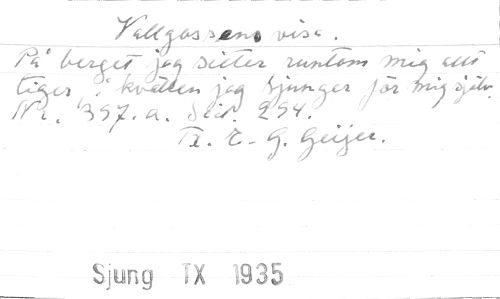 Vallgossens visa.
På berget jag sitter runtom mig allt
tiger, i kvällen jag sjunger för mig själv.
Nr. 397.a. Sid. 294.
Tx. E. G. Geijer.
Sjung TX 1935